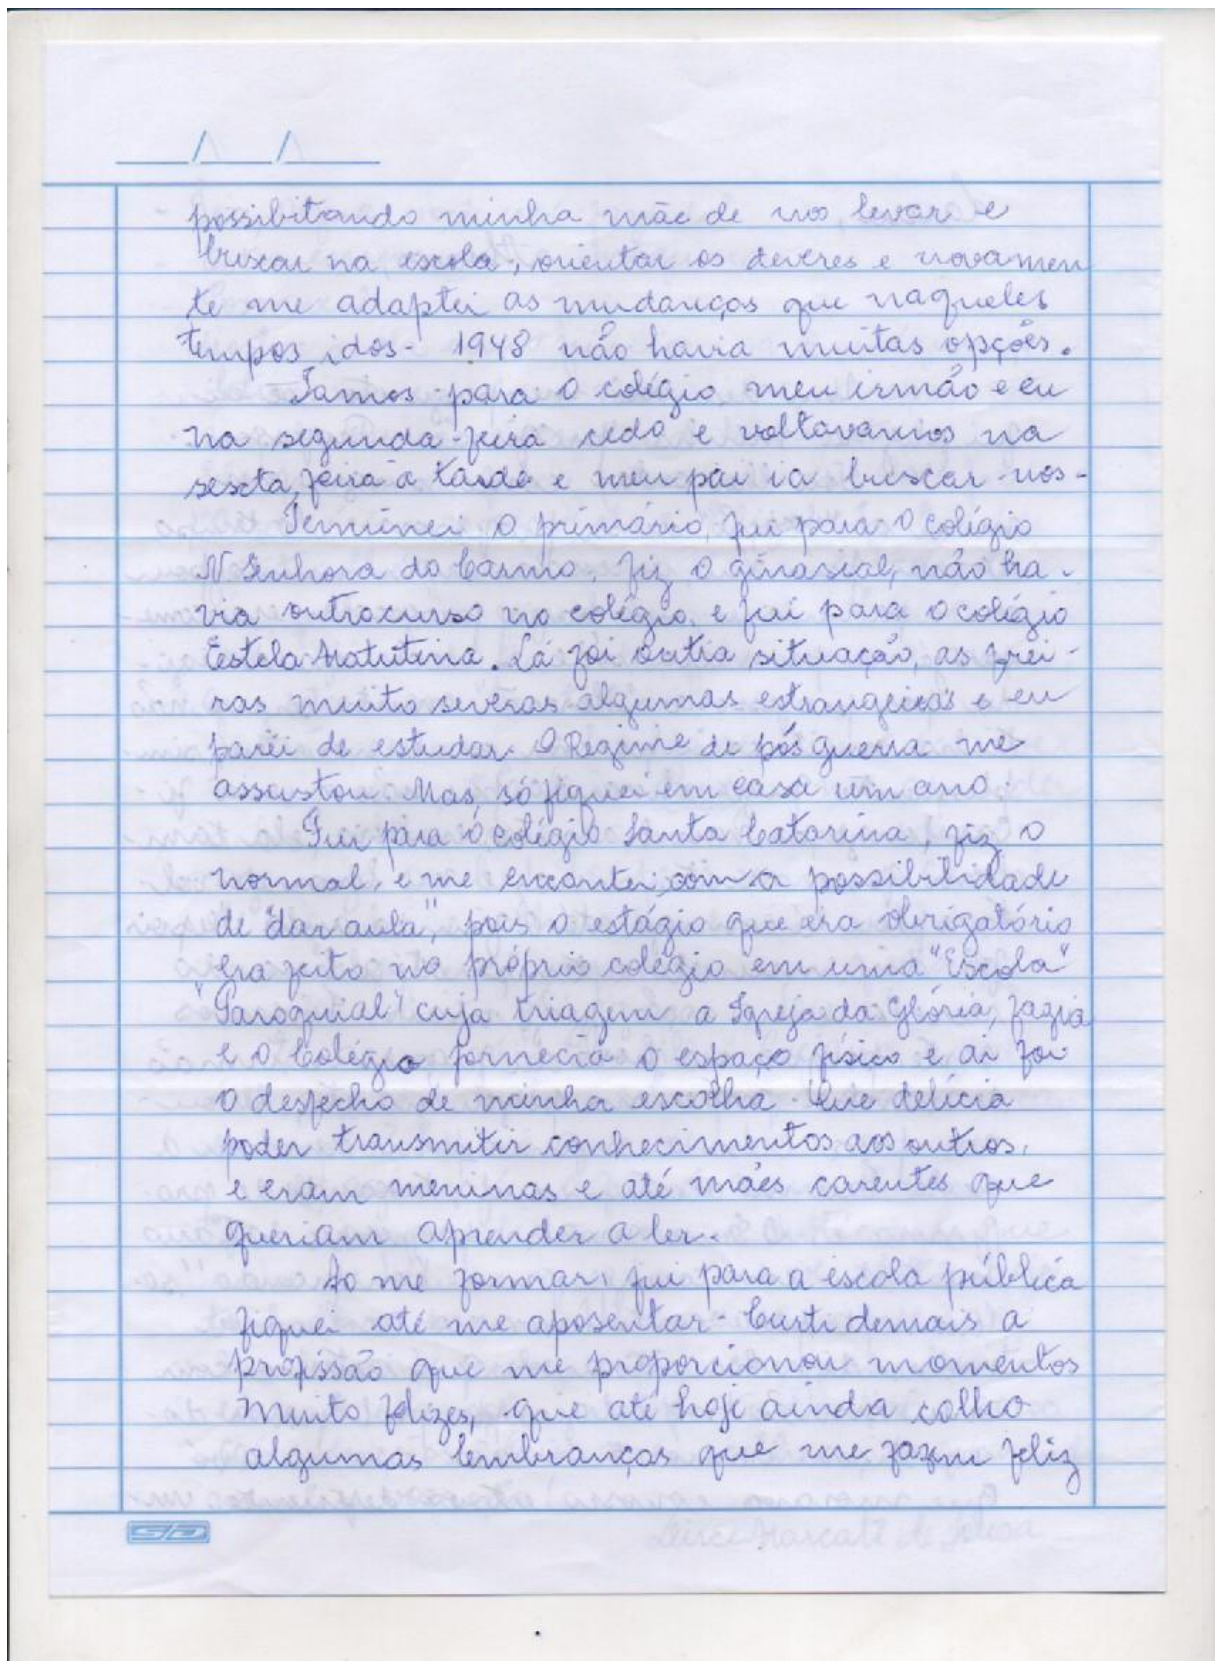 possibitando minha mãe de nos levar e
buscar na escola, orientar os deveres e novamen
te me adaptei as mudanças que naqueles
tempos idos - 1948 não havia muitas opções.
Iamos para o colégio, meu irmão e eu
na segunda-feira cedo e voltavamos na
sexta, feira a tarde e meu pai ia buscar-nos.
Terminei o primário, fui para o colégio
N Senhora do Carmo, fiz o ginasial, não ha-
via outro curso no colégio, e fui para o colégio
Estela Matutina. Lá foi outra situação, as frei-
ras muito severas algumas estrangeiras e eu
parei de estudar. O Regime de pós guerra me
assustou. Mas, só fiquei em casa um ano.
Fui para o colégio Santa Catarina, fiz o
normal, e me encontei com a possibilidade
de "dar aula", pois o estágio que era obrigatório
era feito no próprio colégio em uma "Escola"
"Paroquial" cuja triagem a Igreja da Glória, fazia
e o Colégio fornecia o espaço físico e ai foi
o desfecho de minha escolha. Que delícia
poder transmitir conhecimentos aos outros,
e eram meninas e até mães carentes que
queriam aprender a ler.
Ao me formar, fui para a escola pública
fiquei até me aposentar. Curti demais a
profissão que me proporcionou momentos
muito felizes, que até hoje ainda colho
algumas lembranças que me fazem feliz